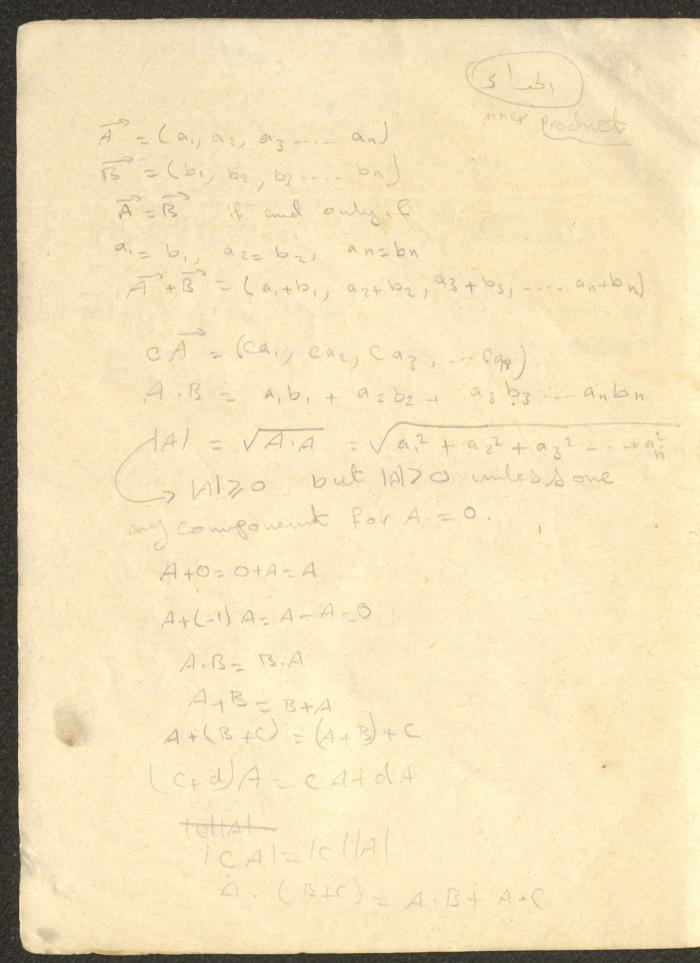 الجداء
inner product
A⃗ = (a₁, a₂, a₃ ..... aₙ)
B⃗ = (b₁, b₂, b₃ ..... bₙ)
A⃗ = B⃗ if and only if
a₁ = b₁, a₂ = b₂, aₙ = bₙ
A⃗ + B⃗ = (a₁+b₁, a₂+b₂, a₃+b₃, ..... aₙ+bₙ)
c A⃗ = (ca₁, ca₂, ca₃, ... caₙ)
A . B = a₁b₁ + a₂b₂ + a₃b₃ ... aₙbₙ
|A| = √A.A = √a₁² + a₂² + a₃² - ... + aₙ²
→ |A| ⩾ 0 but |A| > 0 unless one
any component for A = 0.
A + 0 = 0 + A = A
A + (-1) A = A - A = 0
A . B = B . A
A + B = B + A
A + (B + C) = (A + B) + C
(c + d) A = c A + d A
|c||A|
|c A| = |c| |A|
A . (B + C) = A . B + A . C